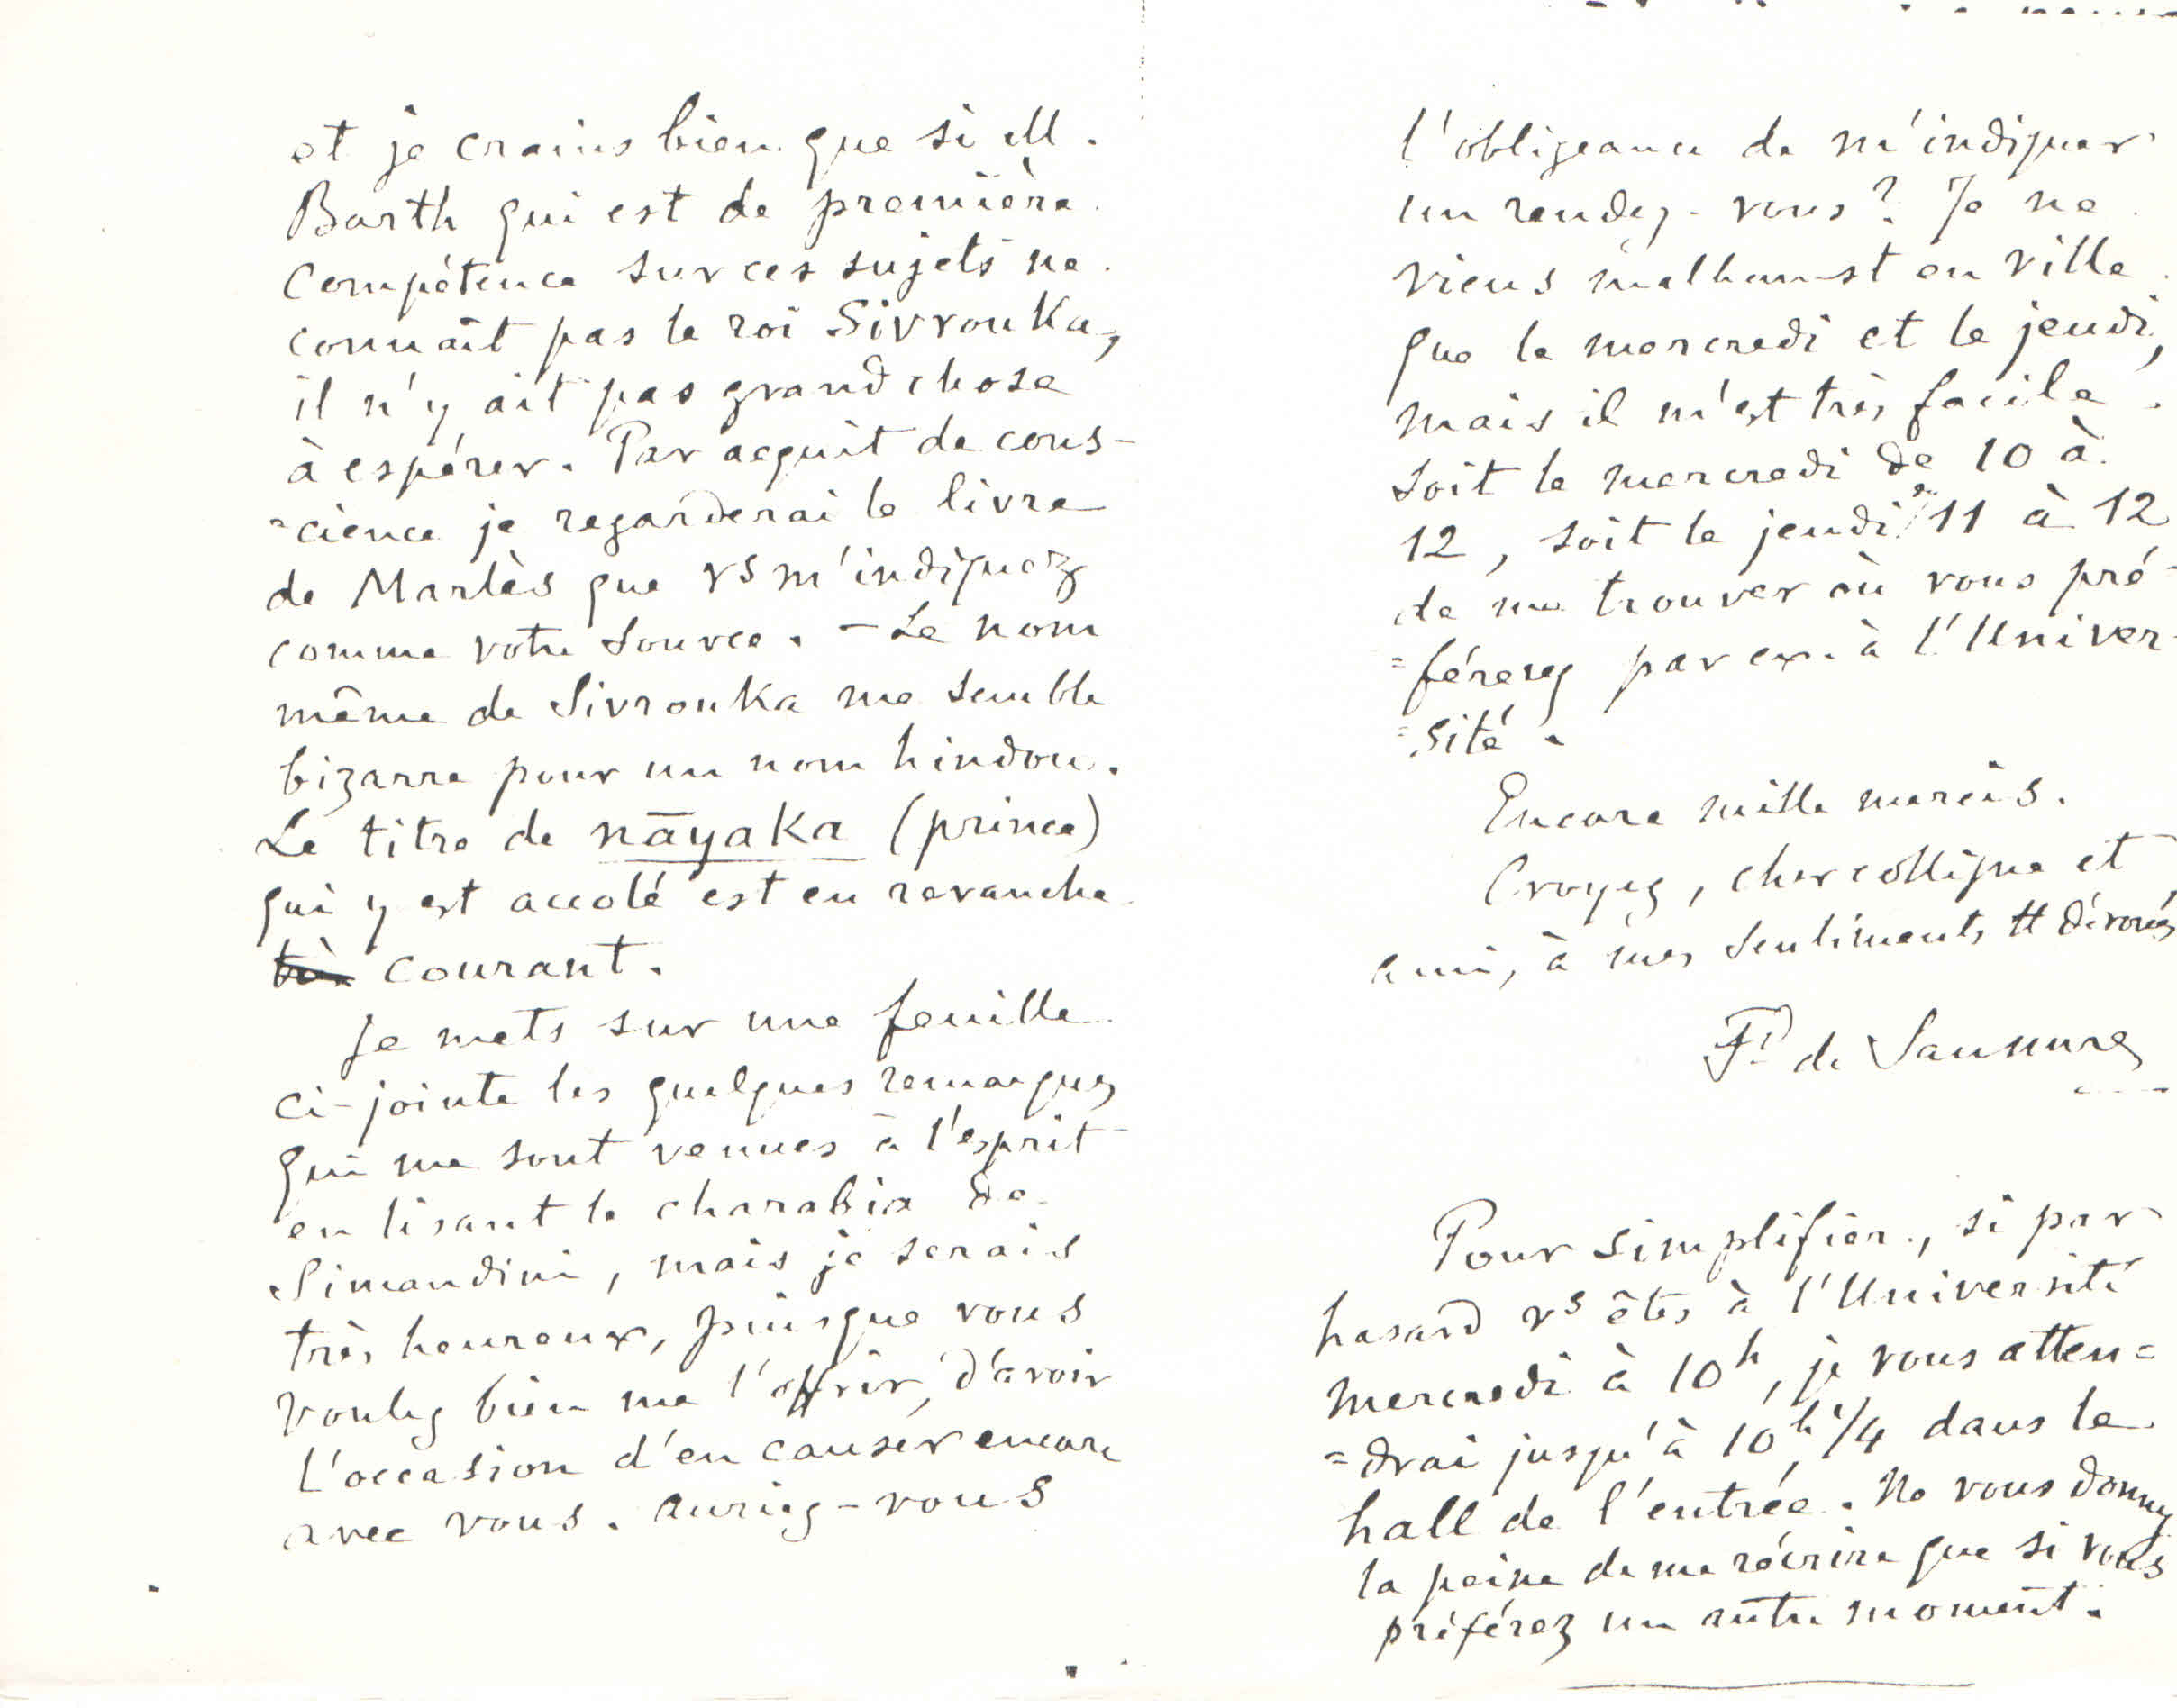 et je crains bien que si M.
Barth qui est de première
compétence sur ces sujets ne
connaît pas le roi Sivrouka,
il n'y ait pas grand chose
à espérer. Par acquit de cons-
-cience je regarderai le livre
de Marlès que vs m'indiquez
comme votre source. – Le nom
même de Sivrouka me semble
bizarre pour un nom hindou.
Le titre de nāyaka (prince)
qui y est accolé est en revanche
très courant.
Je mets sur une feuille
ci-jointe les quelques remarques
qui me sont venues à l'esprit
en lisant le charabia de
Simandini, mais je serais
très heureux, puisque vous
voulez bien me l'offrir, d'avoir
l'occasion d'en causer encore
avec vous. Auriez-vous
l'obligeance de m'indiquer
un rendez-vous? Je ne
viens malheurst en ville
que le mercredi et le jeudi,
mais il m'est très facile
soit le mercredi de 10 à
12, soit le jeudi de 11 à 12
de me trouver où vous pré-
=férerez par ex. à l'Univer-
=sité.
Encore mille mercis.
Croyez, cher collègue et
ami, à mes sentiments tt dévoués
Fd de Saussure
Pour simplifier, si par
hasard vs êtes à l'Université
mercredi à 10h, je vous atten=
=drai jusqu'à 10h 1/4 dans le
hall de l'entrée. Ne vous donnez
la peine de me récrire que si vous
préférez un autre moment.